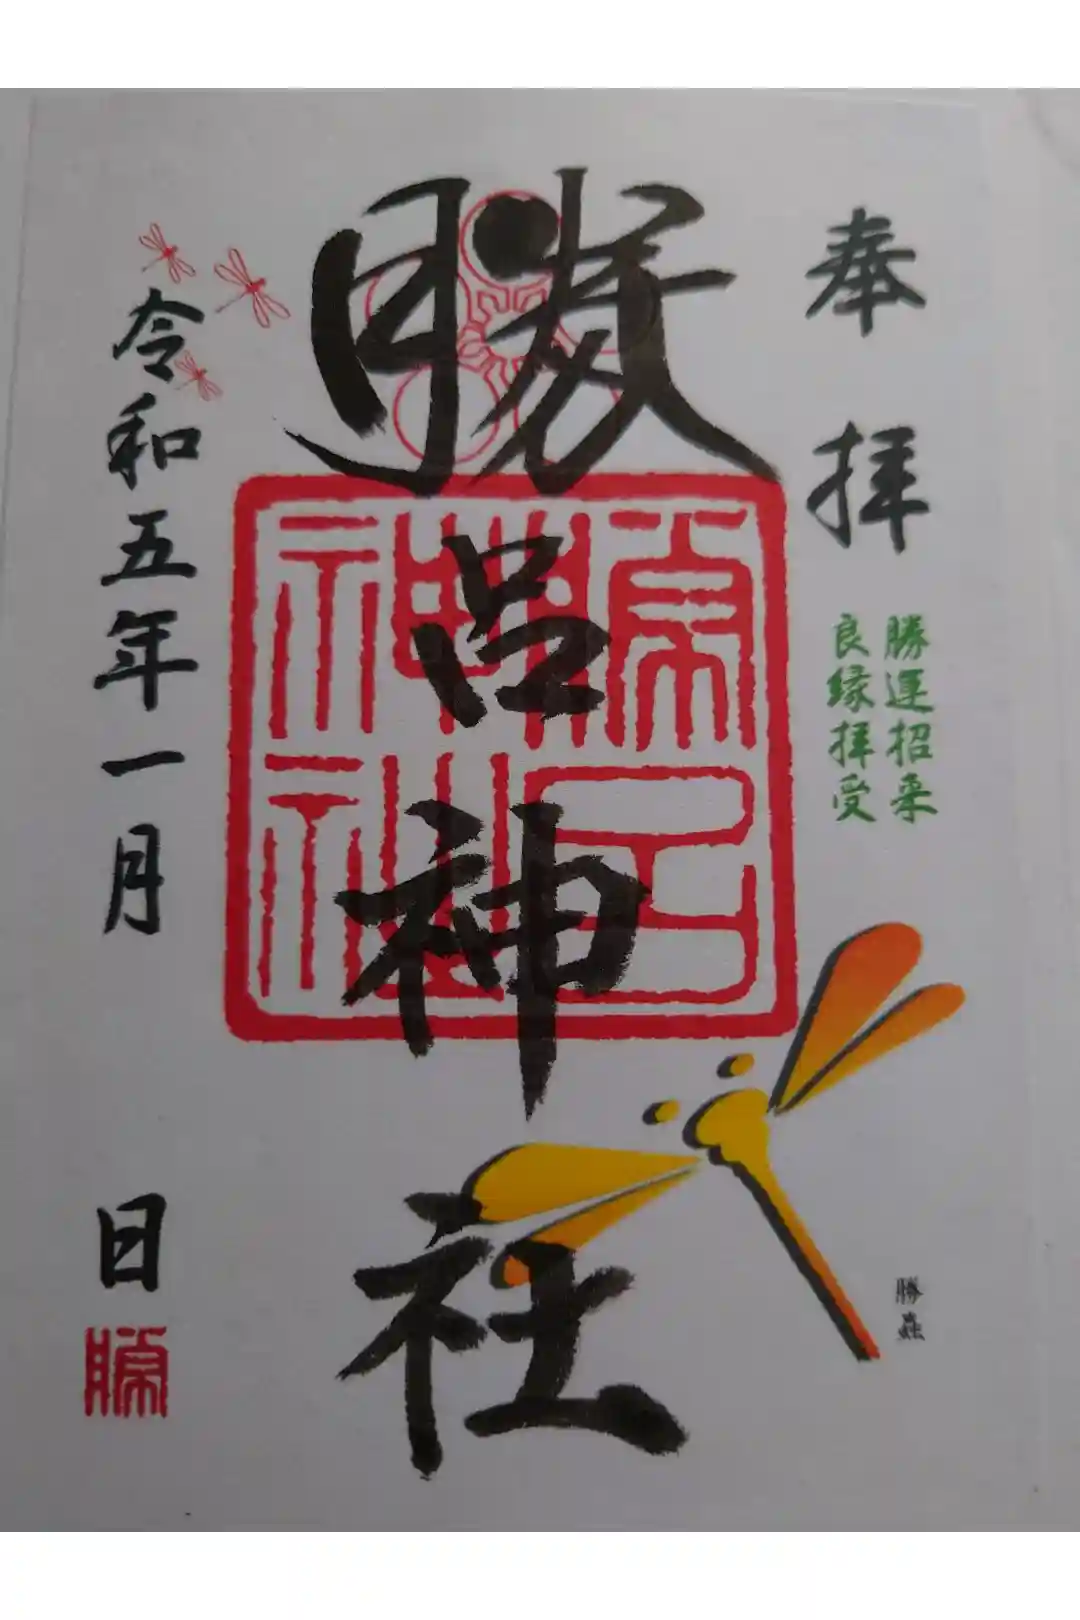 奉拝
勝運招来
良縁拝受
勝呂神社
勝呂神社
令和五年一月　日
勝
勝蟲